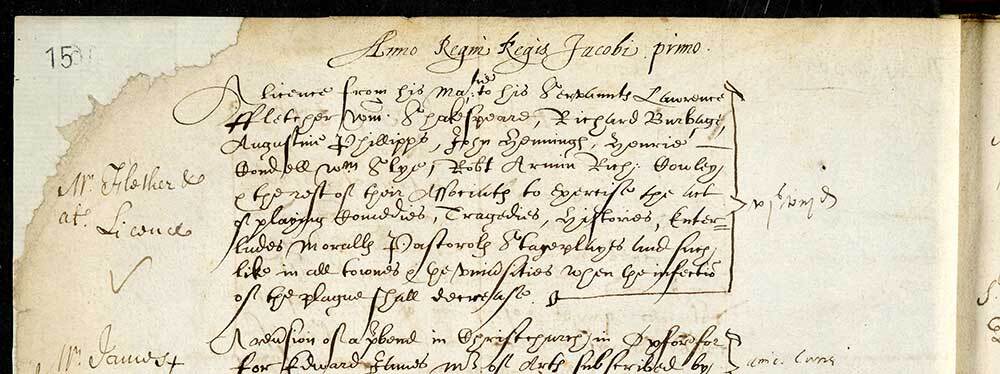 15
Anno Regni Regis Jacobi primo.
A licence from his Ma:tie to his Servaunts Lawrence
ffletcher Wm. Shakespeare, Richard Burbage,
Augustine Phillipps, John Hennings, Henrie
Condell Wm Slye, Robt Armin Rich: Cowley
& the rest of their Associats to exercise the art
of playing Comedies, Tragedies, Histories, Enter=
ludes Moralls Pastoralls Stageplayes and such
like in all townes & the universities when the infectio
of the plague shall decrease.
Mr. Flether &
at.
Licence
A revrsion of a prbend in Christchurch in Oxford for
for Edward James Mr of Arts subscribed by
Mr. James